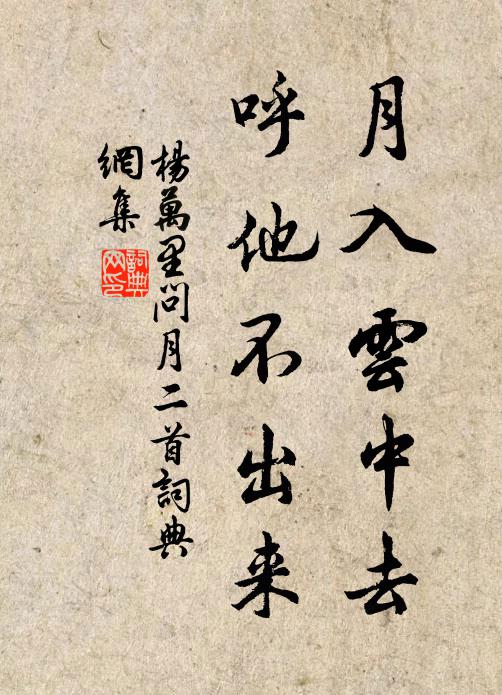 月入雲中去
呼他不出来
楊萬里問月二首詞典
網集
詞典
网印